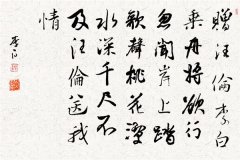 贈汪倫李白
乘舟將欲行
忽聞岸上踏
歌聲桃花潭
水深千尺不
及汪倫送我
情